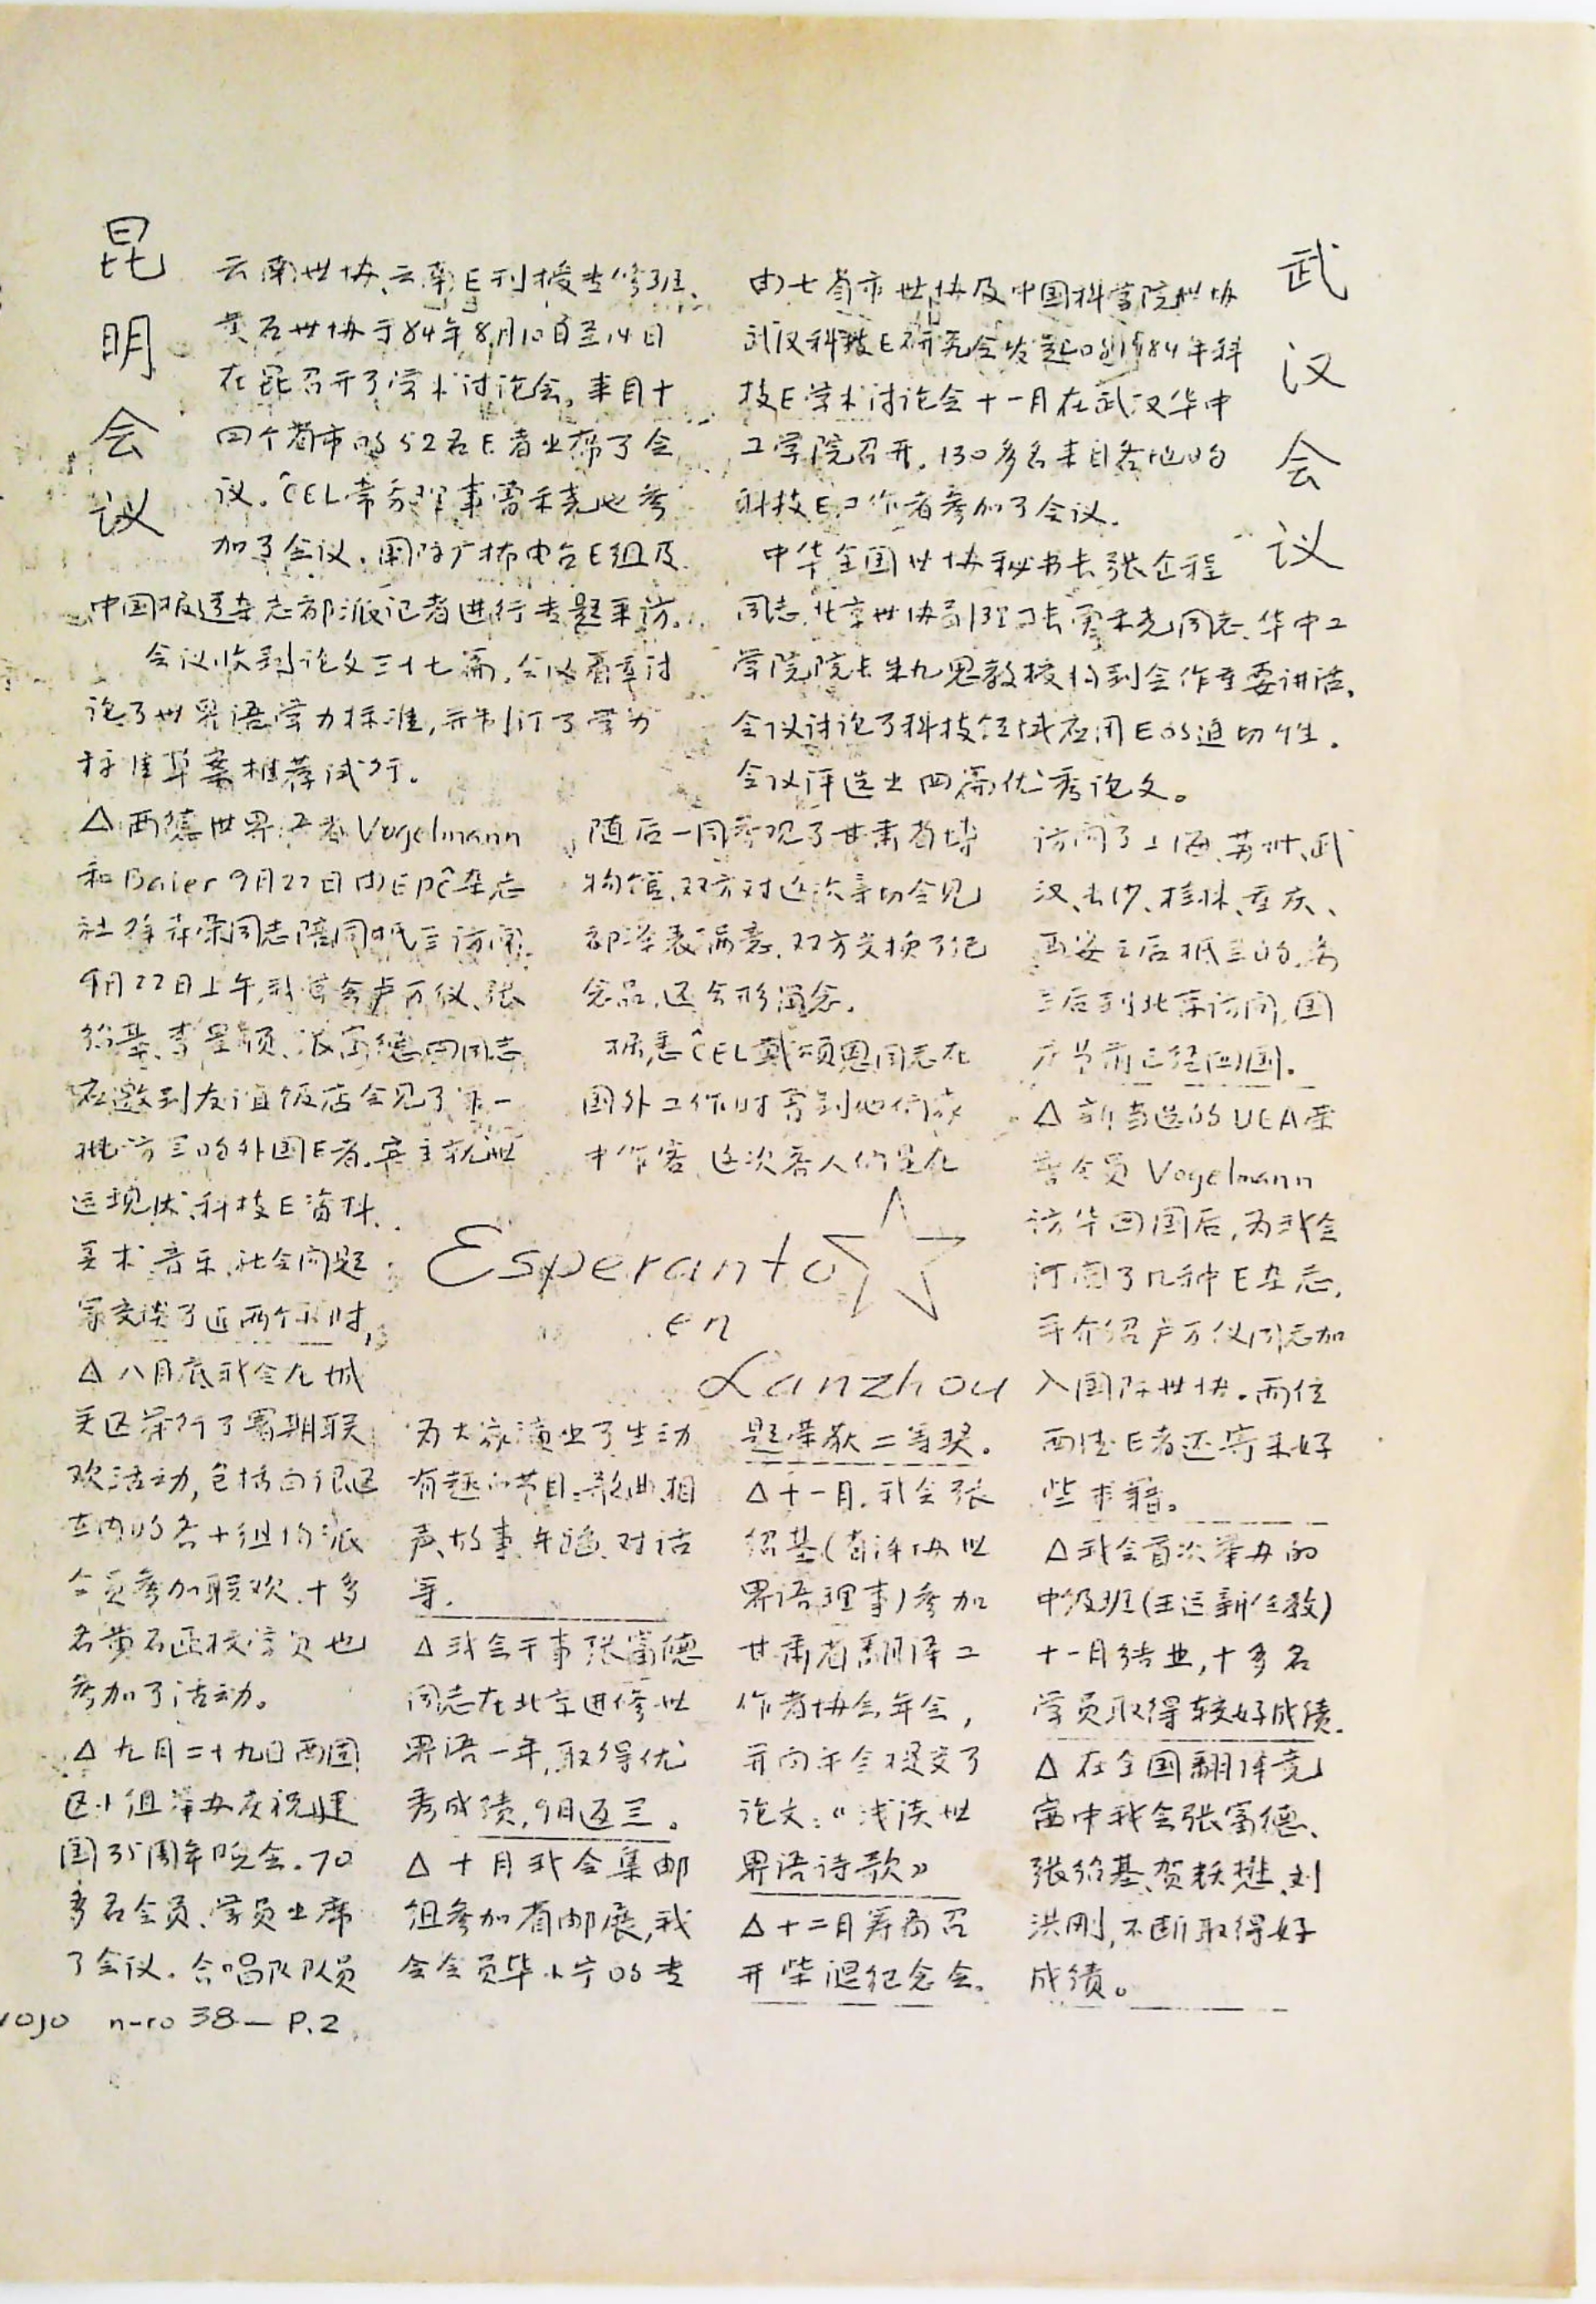 昆明会议
云南世协、云南E刊授专修班、
黄石世协于84年8月10日至14日
在昆召开了学术讨论会。来自十
四个省市的52名E者出席了会
议。ĈEL常务理事 也参
加了会议。国际广播电台E组及
中国报道杂志部派记者进行专题采访。
会议收到论文三十七篇,会议着重讨
论了世界语学力标准,并制订了学力
标准草案推荐试行。
武汉会议
由七省市世协及中国科学院世协
武汉科技E研究会发起的1984年科
技E学术讨论会十一月在武汉华中
工学院召开。130多名来自各地的
科技E工作者参加了会议。
中华全国世协秘书长张企程
同志、北京世协副理事长 同志、华中工
学院院长朱九思教授均到会作重要讲话。
会议讨论了科技领域应用E的迫切性。
会议评选出四篇优秀论文。
△西德世界语者Vogelmann
和Baier 9月22日由EPĈ杂志
社 同志陪同抵兰访问。
9月22日上午,我学会卢万仪、张
绍基、李 、张富德四同志
应邀到友谊饭店会见了第一
批访兰的外国E者。宾主就世
运现状、科技E资料、
美术、音乐、社会问题
等交谈了近两个小时,
随后一同参观了甘肃省博
物馆,双方对这次亲切会见
都深表满意。双方交换了纪
念品,还合影留念。
据悉ĈEL戴颂恩同志在
国外工作时曾到他们家
中作客,这次客人们是在
访问了上海、苏州、武
汉、长沙、桂林、重庆、
西安之后抵兰的,离
兰后到北京访问,国
庆节前已经回国。
△新当选的UEA荣
誉会员 Vogelmann
访华回国后,为我会
订阅了几种E杂志,
并介绍卢万仪同志加
入国际世协。两位
西德E者还寄来好
些书籍。
△我会首次举办的
中级班(王运新任教)
十一月结业,十多名
学员取得较好成绩。
△在全国翻译竞
赛中我会张富德、
张绍基、贺耘懋、刘
洪刚,不断取得好
成绩。
Esperanto
en
Lanzhou
△八月底我会在城
关区举行了暑期联
欢活动,包括
在内的各小组均派
会员参加联欢。十多
名黄石函授学员也
参加了活动。
△九月二十九日西固
区小组举办庆祝建
国35周年晚会。70
多名会员、学员出席
了会议。合唱队队员
为大家演出了生动
有趣的节目:歌曲、相
声、故事、年谣、对话
等。
△我会干事张富德
同志在北京进修世
界语一年,取得优
秀成绩,9月返兰。
△十月我会集邮
组参加省邮展,我
会会员毕小宁的专
题荣获二等奖。
△十一月,我会张
绍基(省译协世
界语理事)参加
甘肃省翻译工
作者协会年会,
并向年会提交了
论文:《浅谈世
界语诗歌》
△十二月筹备召
开柴退纪念会。
vojo n-ro 38—P.2